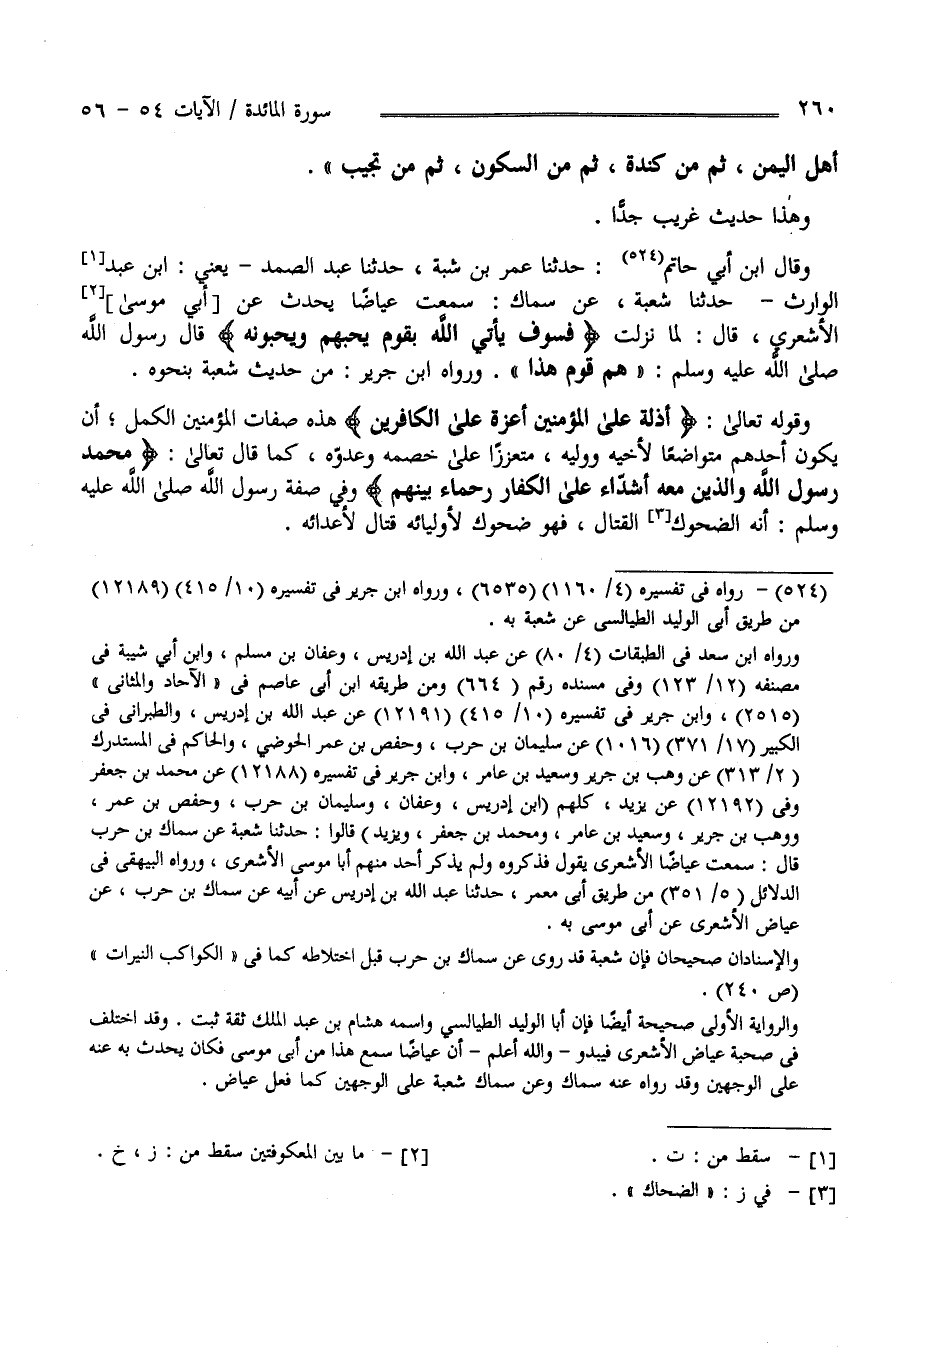 ٢٦٠ سورة المائدة / الآيات ٥٤ – ٥٦
أهل اليمن ، ثم من كندة ، ثم من السكون ، ثم من تجيب » .
وهٰذا حديث غريب جدًّا .
وقال ابن أبي حاتم(٥٢٤) : حدثنا عمر بن شبة ، حدثنا عبد الصمد – يعني : ابن عبد[١]
الوارث – حدثنا شعبة ، عن سماك : سمعت عياضًا يحدث عن [أبي موسىٰ][٢]
الأشعري ، قال : لما نزلت ﴿ فسوف يأتي اللَّه بقوم يحبهم ويحبونه ﴾ قال رسول اللَّه
صلىٰ اللَّه عليه وسلم : « هم قوم هذا » . ورواه ابن جرير : من حديث شعبة بنحوه .
وقوله تعالىٰ : ﴿ أذلة علىٰ المؤمنين أعزة علىٰ الكافرين ﴾ هذه صفات المؤمنين الكمل ؛ أن
يكون أحدهم متواضعًا لأخيه ووليه ، متعززًا علىٰ خصمه وعدوّه ، كما قال تعالىٰ : ﴿ محمد
رسول اللَّه والذين معه أشدّاء علىٰ الكفار رحماء بينهم ﴾ وفي صفة رسول اللَّه صلىٰ اللَّه عليه
وسلم : أنه الضحوك[٣] القتال ، فهو ضحوك لأوليائه قتال لأعدائه .
(٥٢٤) – رواه فى تفسيره (٤/ ١١٦٠) (٦٥٣٥) ، ورواه ابن جرير فى تفسيره (١٠/ ٤١٥) (١٢١٨٩)
من طريق أبى الوليد الطيالسى عن شعبة به .
ورواه ابن سعد فى الطبقات (٤/ ٨٠) عن عبد الله بن إدريس ، وعفان بن مسلم ، وابن أبي شيبة فى
مصنفه (١٢/ ١٢٣) وفى مسنده رقم ( ٦٦٤) ومن طريقه ابن أبى عاصم فى « الآحاد والمثانى »
(٢٥١٥) ، وابن جرير فى تفسيره (١٠/ ٤١٥) (١٢١٩١) عن عبد الله بن إدريس ، والطبرانى فى
الكبير (١٧/ ٣٧١) (١٠١٦) عن سليمان بن حرب ، وحفص بن عمر الحوضي ، والحاكم فى المستدرك
( ٢/ ٣١٣) عن وهب بن جرير وسعيد بن عامر ، وابن جرير فى تفسيره (١٢١٨٨) عن محمد بن جعفر
وفى (١٢١٩٢) عن يزيد ، كلهم (ابن إدريس ، وعفان ، وسليمان بن حرب ، وحفص بن عمر ،
ووهب بن جرير ، وسعيد بن عامر ، ومحمد بن جعفر ، ويزيد) قالوا : حدثنا شعبة عن سماك بن حرب
قال : سمعت عياضًا الأشعرى يقول فذكروه ولم يذكر أحد منهم أبا موسى الأشعرى ، ورواه البيهقى فى
الدلائل ( ٥/ ٣٥١) من طريق أبى معمر ، حدثنا عبد الله بن إدريس عن أبيه عن سماك بن حرب ، عن
عياض الأشعرى عن أبى موسى به .
والإسنادان صحيحان فإن شعبة قد روى عن سماك بن حرب قبل اختلاطه كما فى « الكواكب النيرات »
(ص ٢٤٠) .
والرواية الأولى صحيحة أيضًا فإن أبا الوليد الطيالسي واسمه هشام بن عبد الملك ثقة ثبت . وقد اختلف
فى صحبة عياض الأشعرى فيبدو – والله أعلم – أن عياضًا سمع هذا من أبى موسى فكان يحدث به عنه
على الوجهين وقد رواه عنه سماك وعن سماك شعبة على الوجهين كما فعل عياض .
[١] – سقط من : ت . [٢] – ما بين المعكوفتين سقط من : ز ، خ .
[٣] – في ز : « الضحاك » .